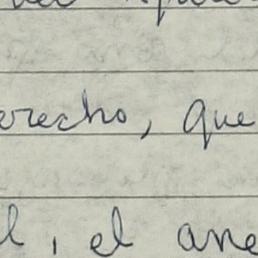 erecho, que
l, el ane